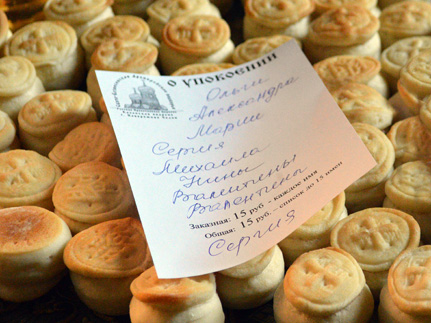 О УПОКОЕНИИ
Ольги
Александра
Марии
Сергия
Михаила
Нины
Валентины
Валентины
Заказная: 15 руб. - каждое имя
Общая: 15 руб. – список до 15 имен
Сергия